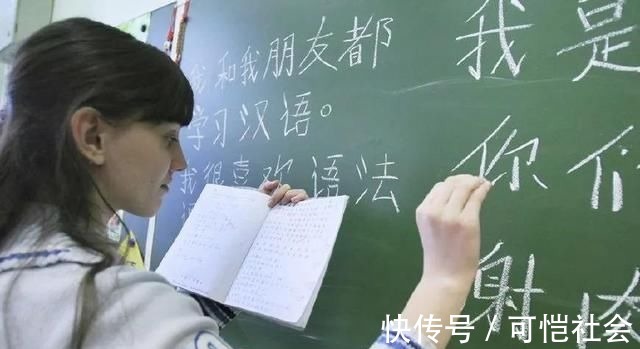 我和我朋友都
学习汉语。
我很喜欢语法
我是
你们
谢
快传号/可恺社会